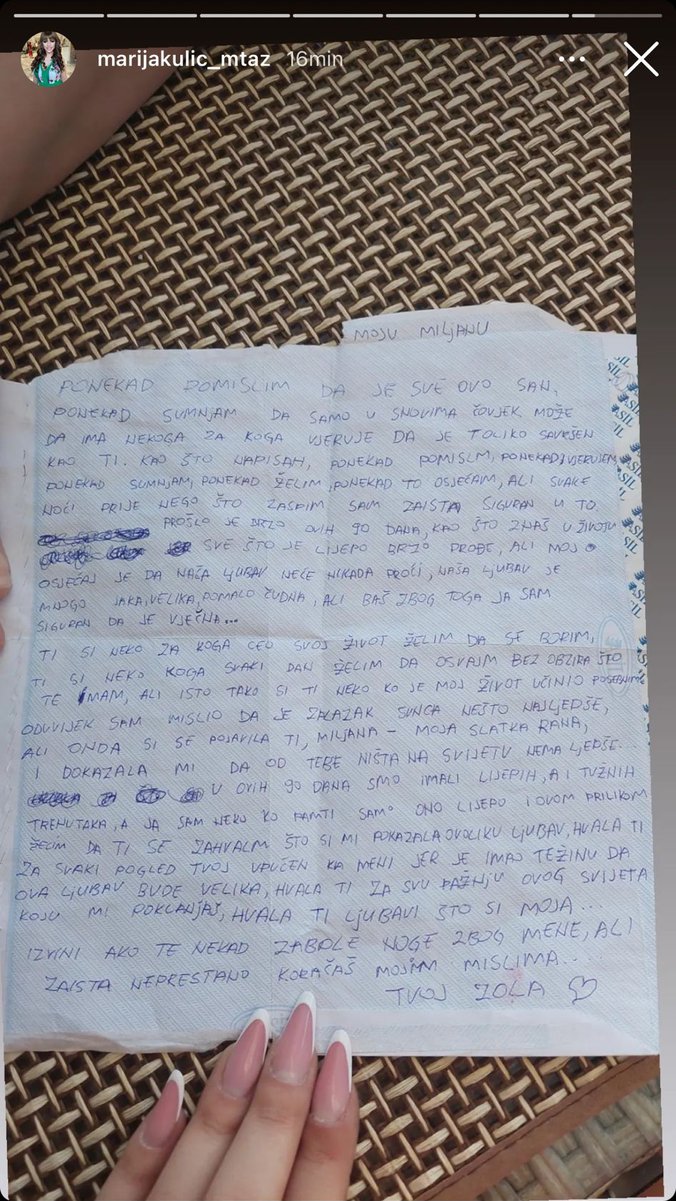 marijakulic_mtaz 16min
MOJU MILJANU
PONEKAD POMISLIM DA JE SVE OVO SAN,
PONEKAD SUMNJAM DA SAMO U SNOVIMA ČOVJEK MOŽE
DA IMA NEKOGA ZA KOGA VJERUJE DA JE TOLIKO SAVRŠEN
KAO TI. KAO ŠTO NAPISAH, PONEKAD POMISLM, PONEKAD VJERUJEM,
PONEKAD SUMNJAM, PONEKAD ŽELIM, PONEKAD TO OSJEĆAM, ALI SVAKE
NOĆI PRIJE NEGO ŠTO ZASPIM SAM ZAISTA SIGURAN U TO.
PROŠLO JE BRZO OVIH 90 DANA, KAO ŠTO ZNAŠ U ŽIVOTU
SVE ŠTO JE LIJEPO BRZO PROĐE, ALI MOJ
OSJEĆAJ JE DA NAŠA LJUBAV NEĆE NIKADA PROĆI, NAŠA LJUBAV JE
MNOGO JAKA, VELIKA, POMALO ČUDNA, ALI BAŠ ZBOG TOGA JA SAM
SIGURAN DA JE VJEČNA...
TI SI NEKO ZA KOGA CEO SVOJ ŽIVOT ŽELIM DA SE BORIM,
TI SI NEKO KOGA SVAKI DAN ŽELIM DA OSVAJM BEZ OBZIRA ŠTO
TE IMAM, ALI ISTO TAKO SI TI NEKO KO JE MOJ ŽIVOT UČINIO POSEBNIM
ODUVIJEK SAM MISLIO DA JE ZALAZAK SUNCA NEŠTO NAJLJEDŠE,
ALI ONDA SI SE POJAVILA TI, MILJANA - MOJA SLATKA RANA,
I DOKAZALA MI DA OD TEBE NIŠTA NA SVIJETU NEMA LJEDŠE...
U OVIH 90 DANA SMO IMALI LIJEPIH, A I TUŽNIH
TRENUTAKA, A JA SAM NEKO KO PAMTI SAMO ONO LIJEPO I OVOM PRILIKOM
ŽELIM DA TI SE ZAHVALM ŠTO SI MI POKAZALA OVOLIKU LJUBAV, HVALA TI
ZA SVAKI POGLED TVOJ UPUĆEN KA MENI JER JE IMAO TEŽINU DA
OVA LJUBAV BUDE VELIKA, HVALA TI ZA SVU PAŽNJU OVOG SVIJETA
KOJU MI POKLANJAŠ, HVALA TI LJUBAVI ŠTO SI MOJA...
IZVINI AKO TE NEKAD ZABOLE NOGE ZBOG MENE, ALI
ZAISTA NEPRESTANO KORAČAŠ MOJIM MISLIMA....
TVOJ ZOLA